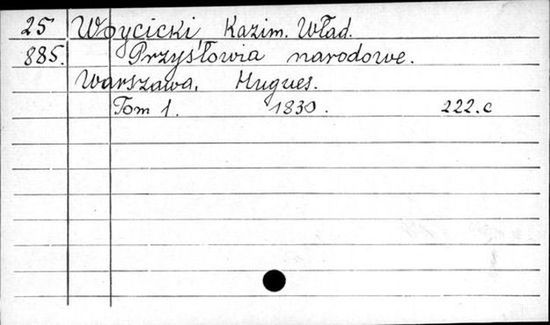 25 Woycicki Kazim. Wład.
885. Przysłowia narodowe.
Warszawa, Hugues.
Tom 1. 1830. 222.c